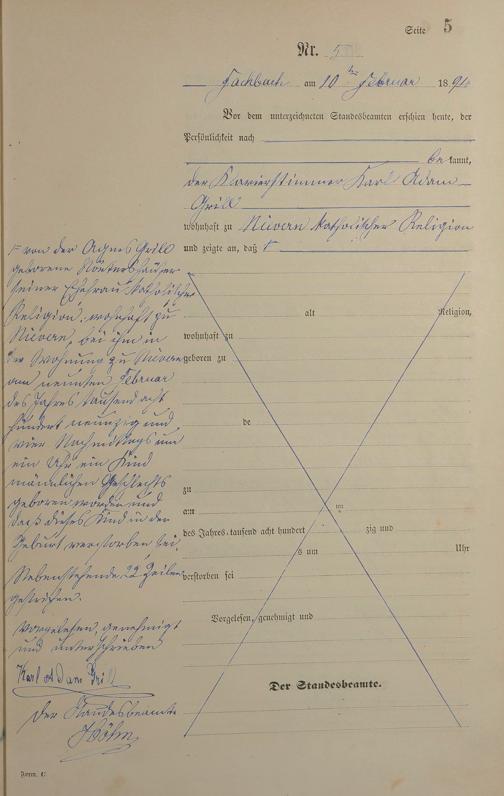 Seite 5
Nr. 5
Fachbach am 10ten Februar 1894
Vor dem unterzeichneten Standesbeamten erschien heute, der
Persönlichkeit nach
be kannt,
der Klavierstimmer Karl Adam
Grill
wohnhaft zu Nievern katholischer Religion
und zeigte an, daß
von der Agnes Grill
geborene
seiner Ehefrau, katholischer
Religion, wohnhaft zu
Nievern, bei ihm in
der Wohnung zu Nievern
am neunten Februar
des Jahres tausend acht
hundert neunzig und
vier Nachmittags um
ein Uhr ein Kind
männlichen Geschlechts
geboren worden und
daß dieses Kind in der
Geburt verstorben sei.
Nebenstehende 22 Zeilen
gestrichen.
Vorgelesen, genehmigt
und unterschrieben
Karl Adam Grill
Der Standesbeamte
Böhm
alt Religion,
wohnhaft zu
geboren zu
de
zu
am
des Jahres tausend acht hundert zig und
s um Uhr
verstorben sei
Vorgelesen, genehmigt und
Der Standesbeamte.
Form. C